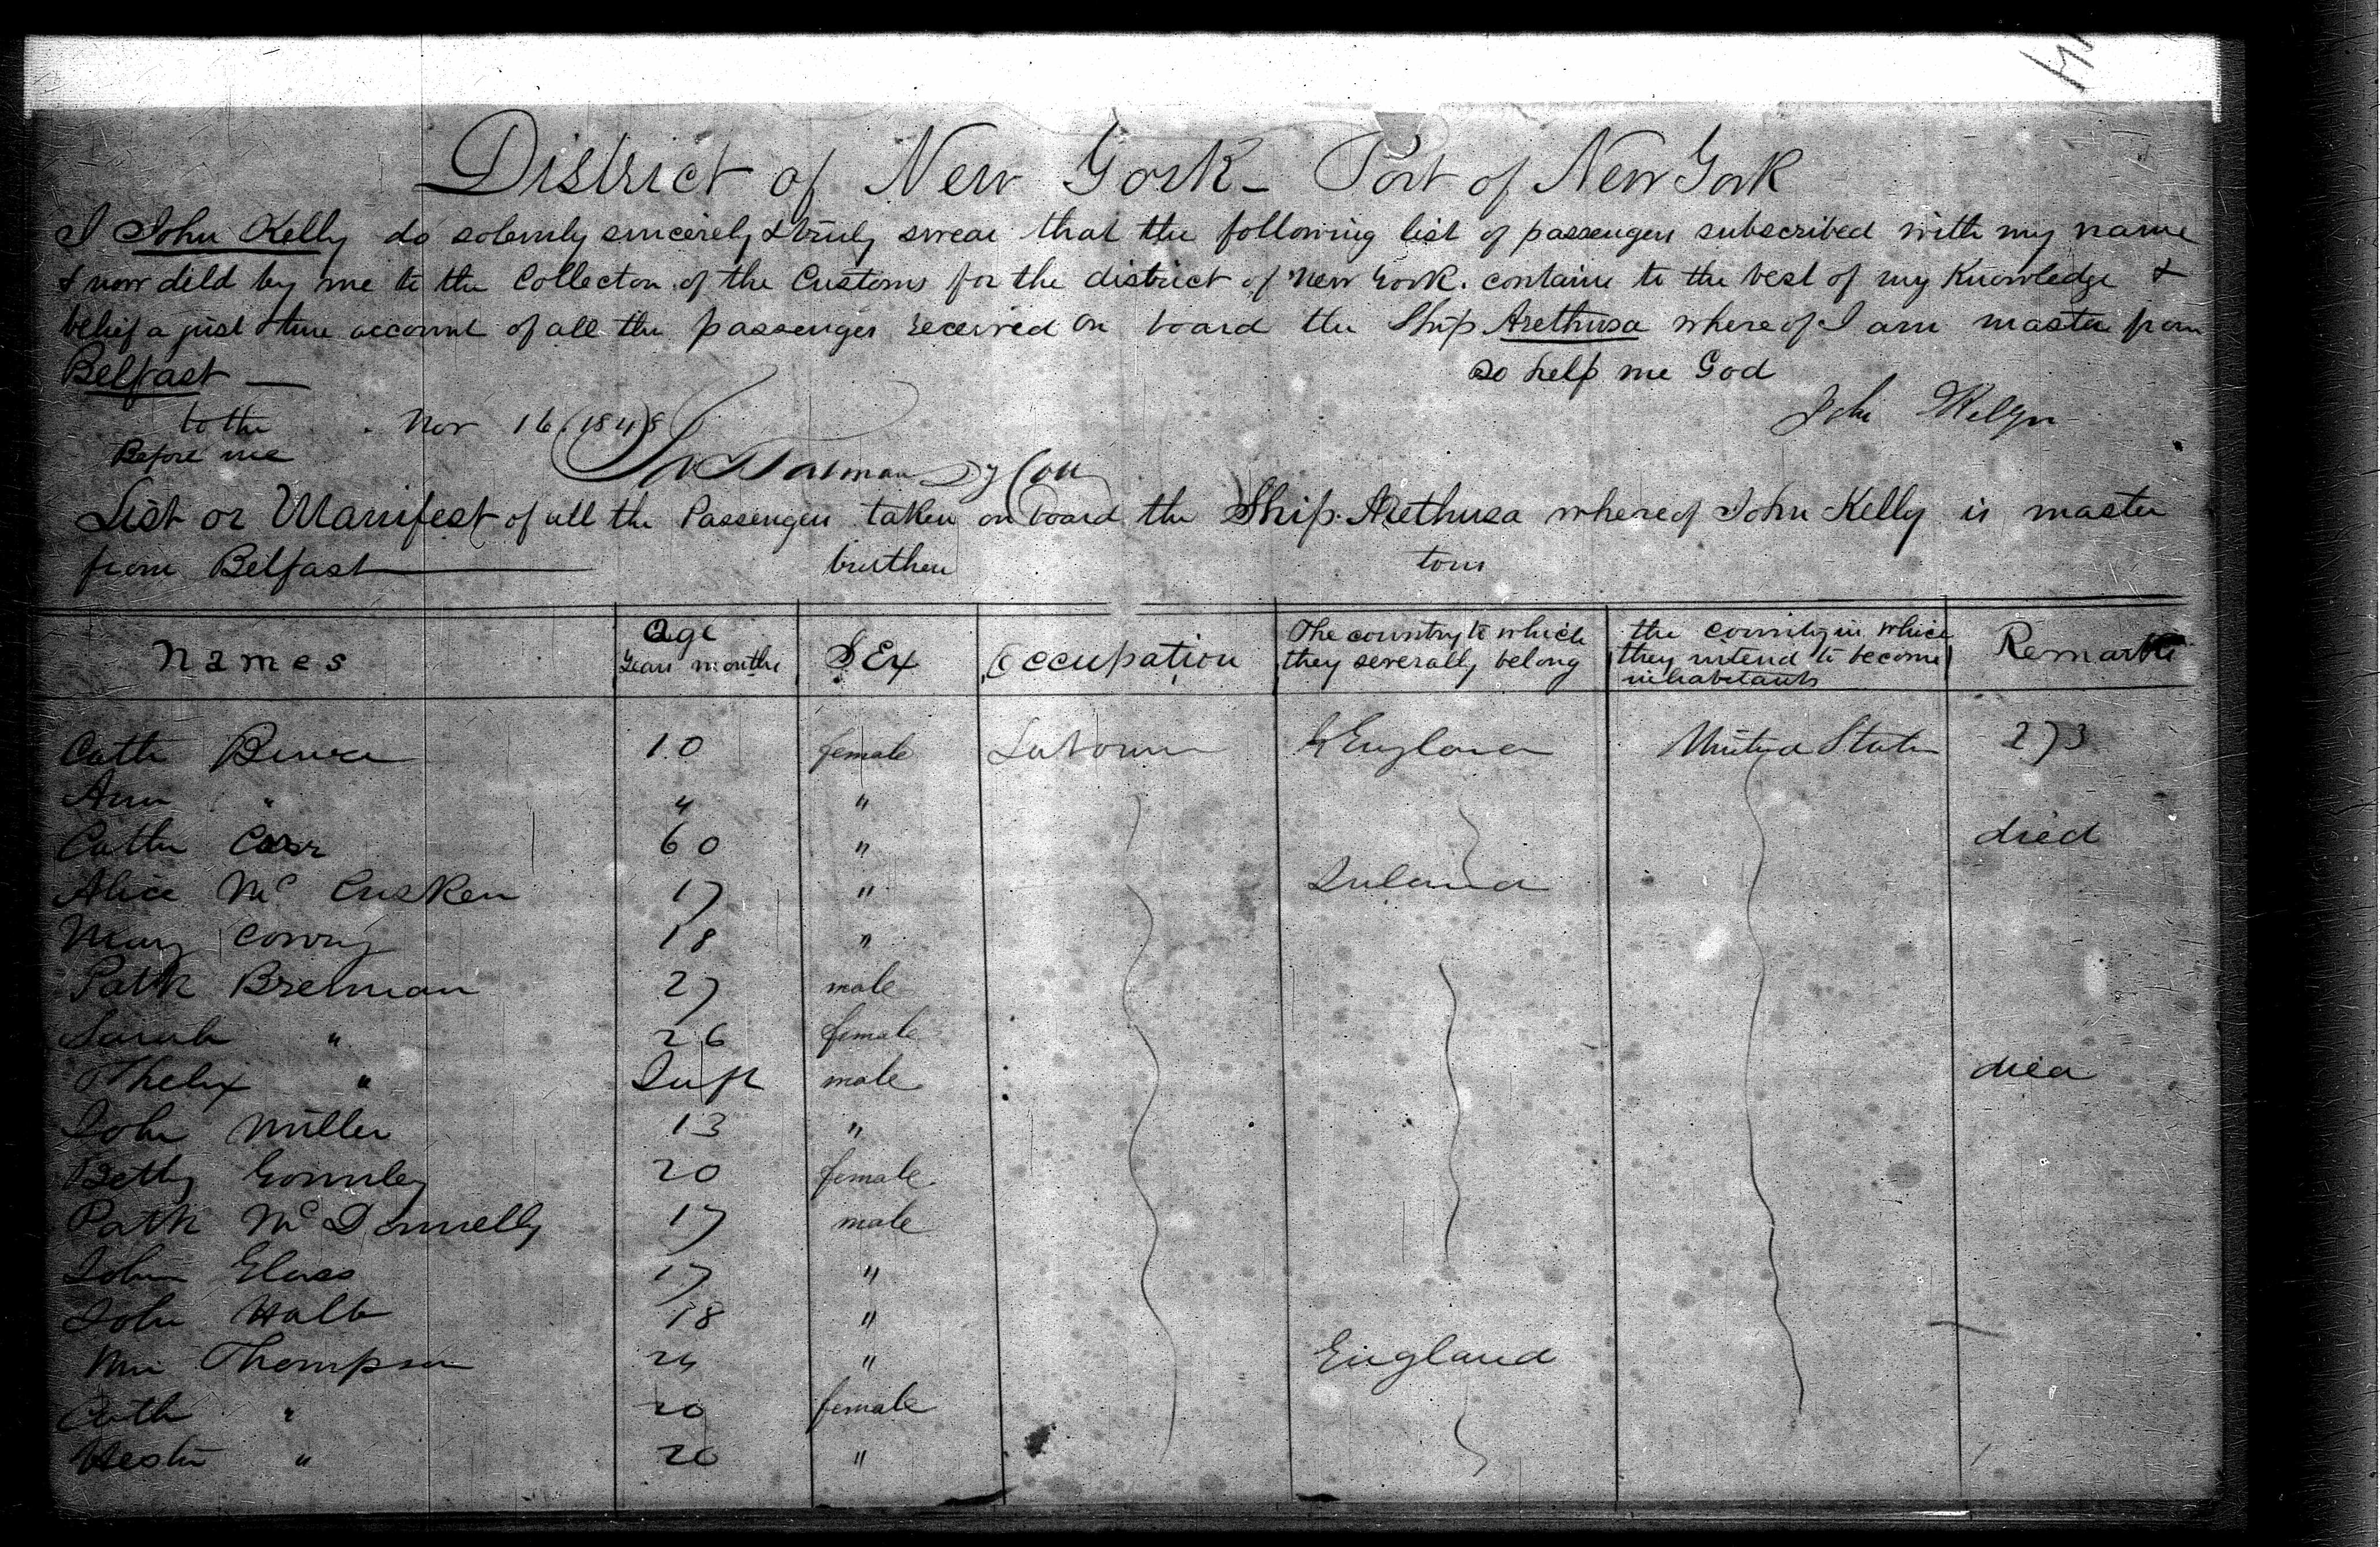 District of New York - Port of New York
I John Kelly do solemnly sincerely & truly swear that the following list of passengers subscribed with my name
& now deld by me to the Collector of the Customs for the district of New York. contains to the best of my Knowledge &
belief a just & true account of all the passengers received on board the Ship Arethusa whereof I am master from
Belfast —
so help me God
to the Nov 16 1848
John
Before me
List or Manifest of all the Passengers taken on board the Ship Arethusa whereof John Kelly is master
from Belfast — burthen tons
Names age Years months SEx Occupation The country to which they severally belong the country in which they intend to become inhabitants Remarks
Cath 10 female England United States 273
Ann " 4 "
Cath Carr 60 " died
Alice Mc Cusken 17 " Ireland
Mary Conry 18 "
Patk Brennan 27 male
Sarah " 26 female
Phelix " Inft male died
John Miller 13 "
Betty Gormley 20 female
Patk Mc Donnelly 17 male
John Glass 17 "
John 18 "
Wm Thompson 24 " England
Cath " 20 female
Hester " 20 "